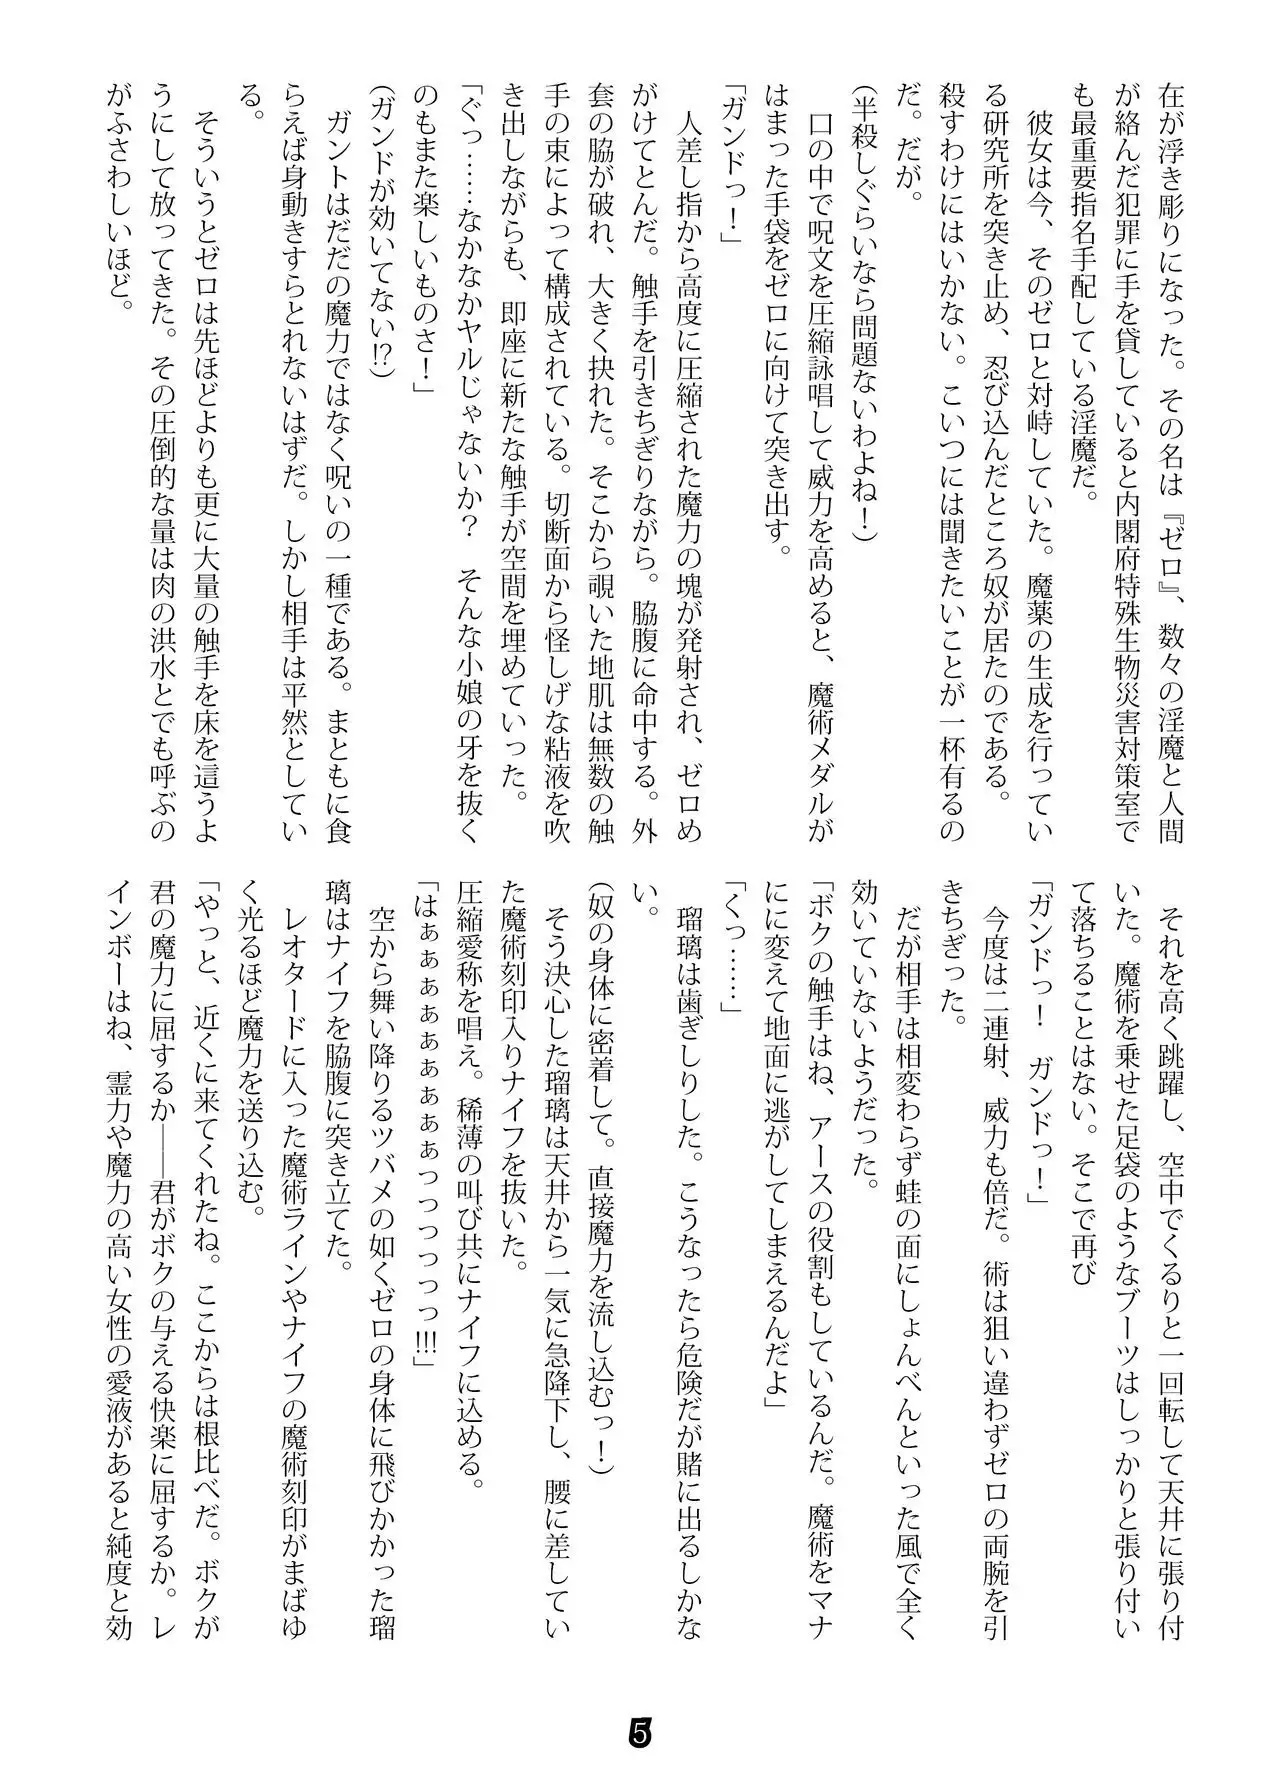 在が浮き彫りになった。その名は『ゼロ』、数々の淫魔と人間
が絡んだ犯罪に手を貸していると内閣府特殊生物災害対策室で
も最重要指名手配している淫魔だ。
彼女は今、そのゼロと対峙していた。魔薬の生成を行ってい
る研究所を突き止め、忍び込んだところ奴が居たのである。
殺すわけにはいかない。こいつには聞きたいことが一杯有るの
だ。だが。
(半殺しぐらいなら問題ないわよね!)
口の中で呪文を圧縮詠唱して威力を高めると、魔術メダルが
はまった手袋をゼロに向けて突き出す。
「ガンドっ!」
人差し指から高度に圧縮された魔力の塊が発射され、ゼロめ
がけてとんだ。触手を引きちぎりながら。脇腹に命中する。外
套の脇が破れ、大きく抉れた。そこから覗いた地肌は無数の触
手の束によって構成されている。切断面から怪しげな粘液を吹
き出しながらも、即座に新たな触手が空間を埋めていった。
「ぐっ……なかなかヤルじゃないか? そんな小娘の牙を抜く
のもまた楽しいものさ!」
(ガンドが効いてない!?)
ガントはだだの魔力ではなく呪いの一種である。まともに食
らえば身動きすらとれないはずだ。しかし相手は平然としてい
る。
そういうとゼロは先ほどよりも更に大量の触手を床を這うよ
うにして放ってきた。その圧倒的な量は肉の洪水とでも呼ぶの
がふさわしいほど。
それを高く跳躍し、空中でくるりと一回転して天井に張り付
いた。魔術を乗せた足袋のようなブーツはしっかりと張り付い
て落ちることはない。そこで再び
「ガンドっ! ガンドっ!」
今度は二連射、威力も倍だ。術は狙い違わずゼロの両腕を引
きちぎった。
だが相手は相変わらず蛙の面にしょんべんといった風で全く
効いていないようだった。
「ボクの触手はね、アースの役割もしているんだ。魔術をマナ
にに変えて地面に逃がしてしまえるんだよ」
「くっ……」
瑠璃は歯ぎしりした。こうなったら危険だが賭に出るしかな
い。
(奴の身体に密着して。直接魔力を流し込むっ!)
そう決心した瑠璃は天井から一気に急降下し、腰に差してい
た魔術刻印入りナイフを抜いた。
圧縮愛称を唱え。稀薄の叫び共にナイフに込める。
「はぁぁぁぁぁぁぁぁっっっっっっ!!!」
空から舞い降りるツバメの如くゼロの身体に飛びかかった瑠
璃はナイフを脇腹に突き立てた。
レオタードに入った魔術ラインやナイフの魔術刻印がまばゆ
く光るほど魔力を送り込む。
「やっと、近くに来てくれたね。ここからは根比べだ。ボクが
君の魔力に屈するか――君がボクの与える快楽に屈するか。レ
インボーはね、霊力や魔力の高い女性の愛液があると純度と効
5